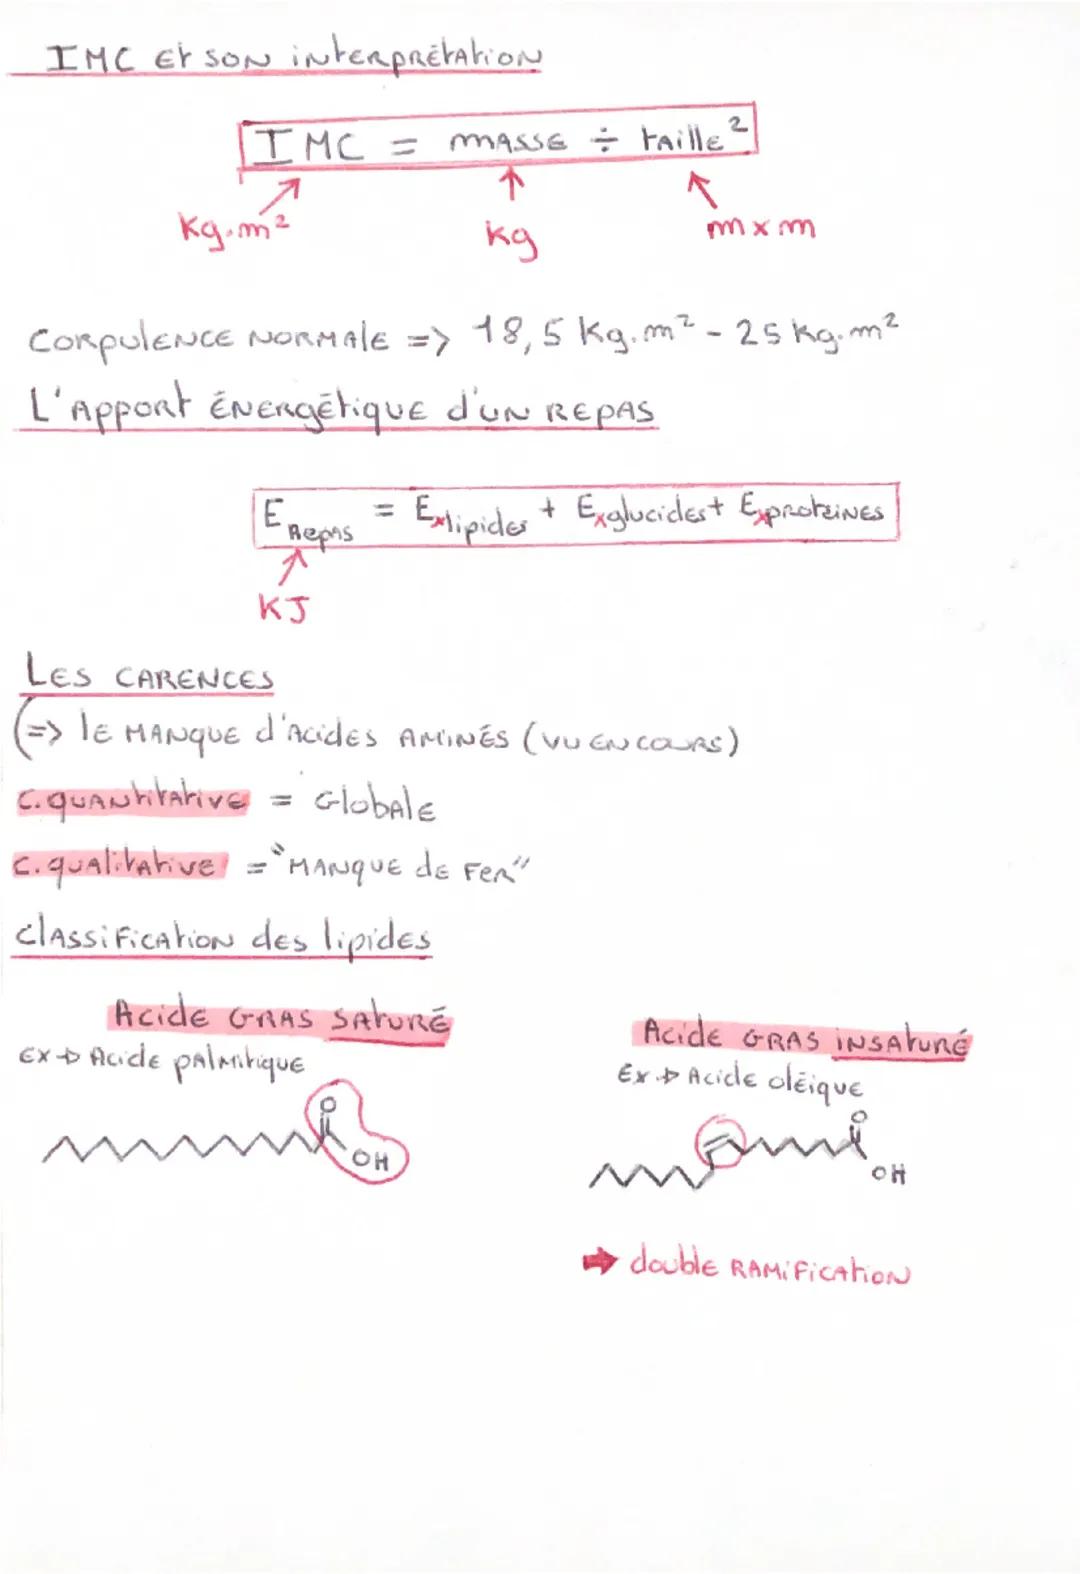 IMC et son interprétation
IMC = masse ÷ taille²
kg.m² kg m x m
Corpulence normale => 18,5 kg.m² - 25 kg.m²
L'apport énergétique d'un repas
E Repas = E x lipides + E x glucides + E x protéines
KJ
Les carences
(=> le manque d'acides aminés (vu en cours)
C. quantitative = Globale
C. qualitative = "Manque de fer"
Classification des lipides
Acide gras saturé
Ex → Acide palmitique
O
OH
Acide gras insaturé
Ex → Acide oléique
O
OH
→ double ramification